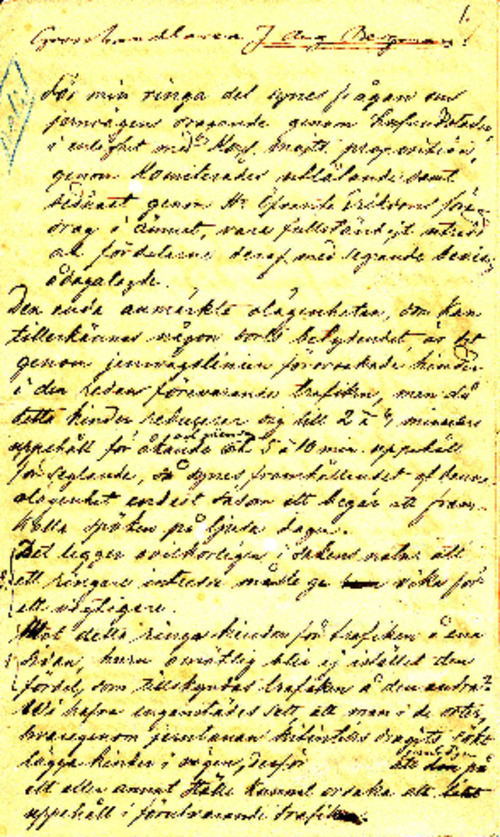 1.
Grosshandlaren J. Aug. Bergman:
För min ringa del synes frågan om
jernvägens dragande genom
i enlighet med Kongl. Majts proposition,
genom Komiterades utlåtande samt
sednast genom Hr Öfverste Eriksons före-
drag i ämnet, vara fullständigt utredd
och fördelarne deraf med segrande bevis
ådagalagde.
Den enda anmärkta olägenheten, som kan
tillerkännas någon sorts betydenhet är det
genom jernvägslinien förorsakade hinder
i den redan förevarande trafiken, men då
detta hinder reducerar sig till 2 à 4 minuters
uppehåll för åkande och 5 à 10 min. uppehåll
för seglande, så synes framhållandet af denna
olägenhet endast såsom ett begär att fram-
kalla spöken på ljusa dagen.
Det ligger ovilkorligen i sakens natur att
ett ringare intresse måste ge vika för
ett vigtigare.
Mot detta ringa hinder för trafiken å ena
sidan, huru omätlig blir ej istället den
fördel, som tillskyndas trafiken å den andra?
Vi hafva ingenstädes sett att man i de orter,
hvarigenom jernbanan hitintills dragits, sökt
lägga hinder i vägen, derför att jernvägen på
ett eller annat ställe kunnat orsaka ett
uppehåll i förutvarande trafik.